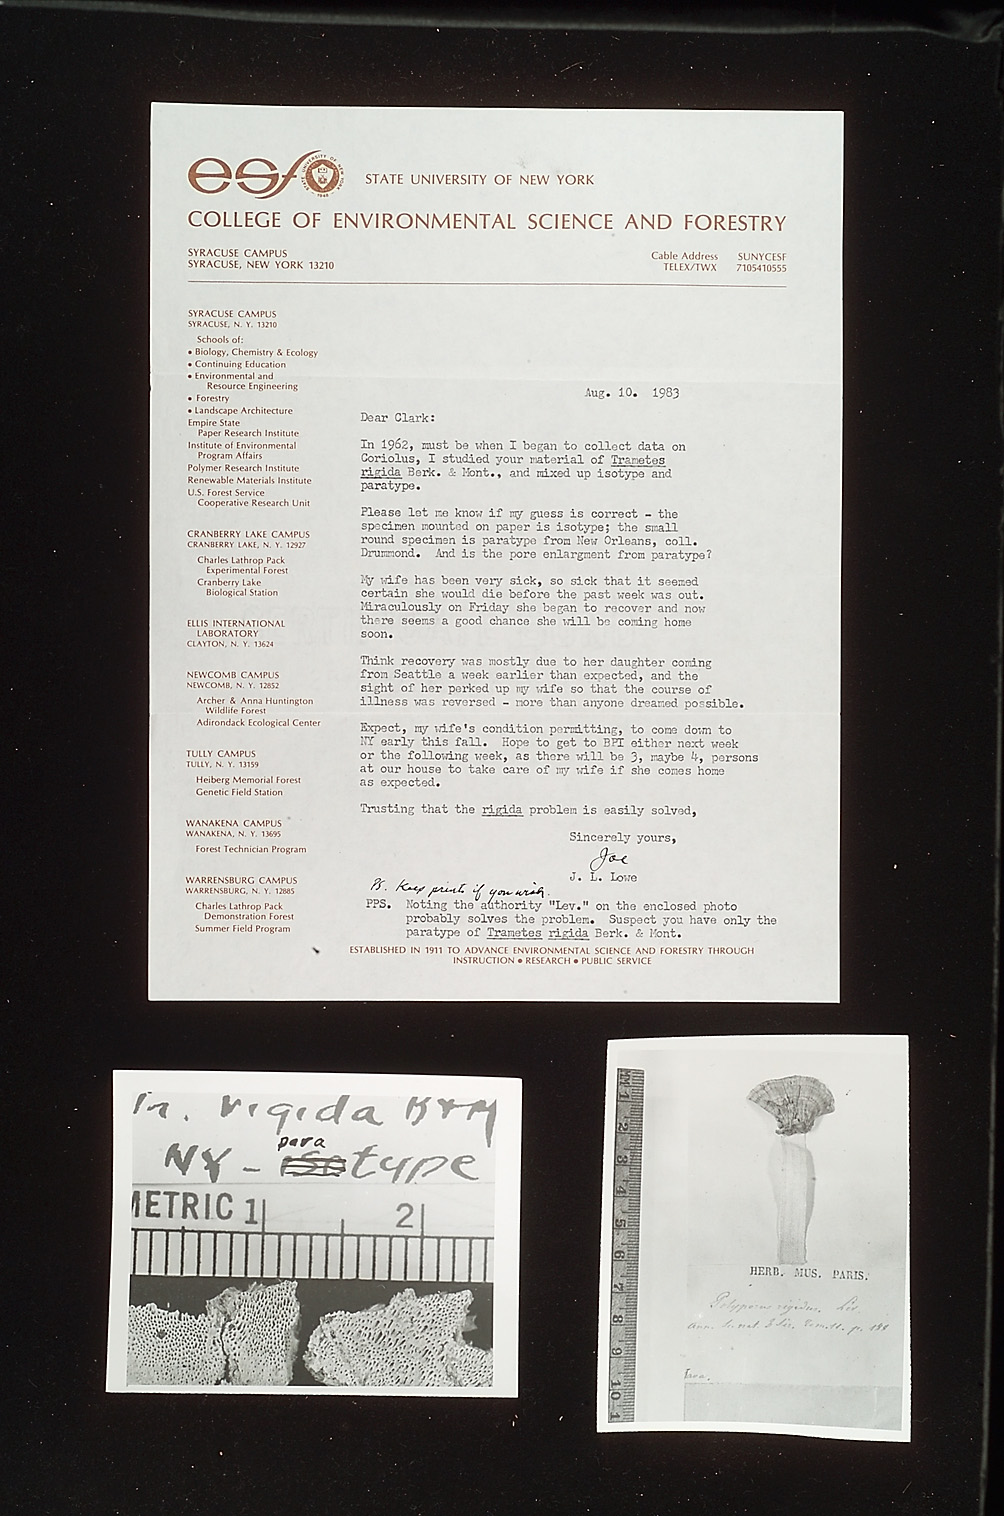 esf STATE UNIVERSITY OF NEW YORK
COLLEGE OF ENVIRONMENTAL SCIENCE AND FORESTRY
SYRACUSE CAMPUS
SYRACUSE, NEW YORK 13210
Cable Address SUNYCESF
TELEX/TWX 7105410555
SYRACUSE CAMPUS
SYRACUSE, N. Y. 13210
Schools of:
• Biology, Chemistry & Ecology
• Continuing Education
• Environmental and
Resource Engineering
• Forestry
• Landscape Architecture
Empire State
Paper Research Institute
Institute of Environmental
Program Affairs
Polymer Research Institute
Renewable Materials Institute
U.S. Forest Service
Cooperative Research Unit
CRANBERRY LAKE CAMPUS
CRANBERRY LAKE, N. Y. 12927
Charles Lathrop Pack
Experimental Forest
Cranberry Lake
Biological Station
ELLIS INTERNATIONAL
LABORATORY
CLAYTON, N. Y. 13624
NEWCOMB CAMPUS
NEWCOMB, N. Y. 12852
Archer & Anna Huntington
Wildlife Forest
Adirondack Ecological Center
TULLY CAMPUS
TULLY, N. Y. 13159
Heiberg Memorial Forest
Genetic Field Station
WANAKENA CAMPUS
WANAKENA, N. Y. 13695
Forest Technician Program
WARRENSBURG CAMPUS
WARRENSBURG, N. Y. 12885
Charles Lathrop Pack
Demonstration Forest
Summer Field Program
Aug. 10. 1983
Dear Clark:
In 1962, must be when I began to collect data on
Coriolus, I studied your material of Trametes
rigida Berk. & Mont., and mixed up isotype and
paratype.
Please let me know if my guess is correct - the
specimen mounted on paper is isotype; the small
round specimen is paratype from New Orleans, coll.
Drummond. And is the pore enlargment from paratype?
My wife has been very sick, so sick that it seemed
certain she would die before the past week was out.
Miraculously on Friday she began to recover and now
there seems a good chance she will be coming home
soon.
Think recovery was mostly due to her daughter coming
from Seattle a week earlier than expected, and the
sight of her perked up my wife so that the course of
illness was reversed - more than anyone dreamed possible.
Expect, my wife's condition permitting, to come down to
NY early this fall. Hope to get to BPI either next week
or the following week, as there will be 3, maybe 4, persons
at our house to take care of my wife if she comes home
as expected.
Trusting that the rigida problem is easily solved,
Sincerely yours,
Joe
J. L. Lowe
PS. Keep print if you wish.
PPS. Noting the authority "Lev." on the enclosed photo
probably solves the problem. Suspect you have only the
paratype of Trametes rigida Berk. & Mont.
ESTABLISHED IN 1911 TO ADVANCE ENVIRONMENTAL SCIENCE AND FORESTRY THROUGH
INSTRUCTION • RESEARCH • PUBLIC SERVICE
Tr. rigida B & M
para
NY - isotype
METRIC 1 2
MM 1 2 3 4 5 6 7 8 9 10 1
HERB. MUS. PARIS.
Polyporus rigidus. Lév.
Java.